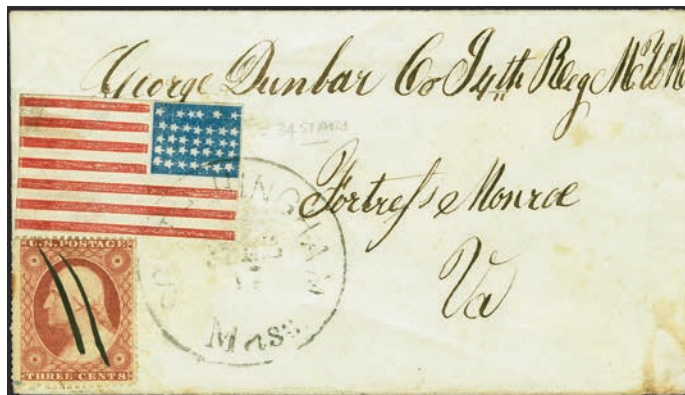 George Dunbar Co I 4th Reg M.V.M
34 STARS
Fortreſs Monroe
Va
Mass.
U.S. POSTAGE
THREE CENTS